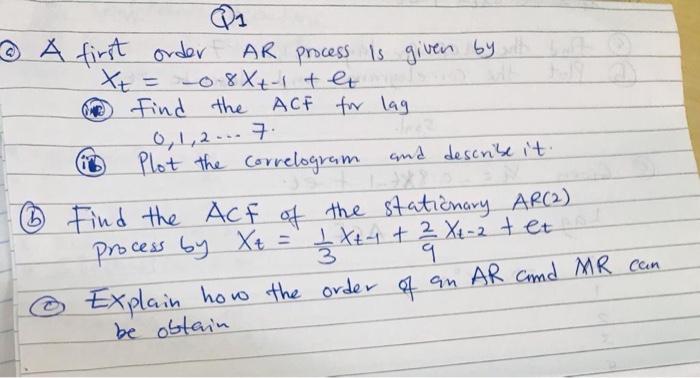 Q1
(a) A first order AR process is given by
Xt = -0.8Xt-1 + et
(i) Find the ACF for lag
0,1,2 --- 7.
(ii) Plot the correlogram and describe it.
(b) Find the ACF of the stationary AR(2)
process by Xt = 1/3 Xt-1 + 2/9 Xt-2 + et
(c) Explain how the order of an AR and MR can
be obtain